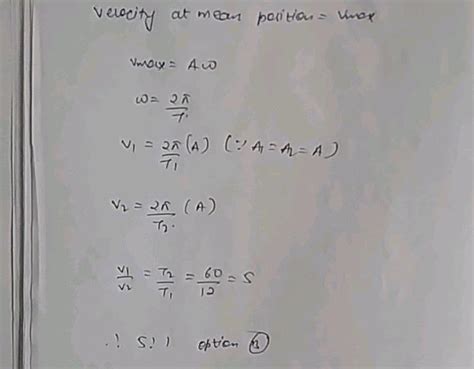 Velocity at mean position = Vmax
Vmax = Aω
ω = 2π/T
V₁ = 2π/T₁ (A) (∵ A₁ = A₂ = A)
V₂ = 2π/T₂ (A)
V₁/V₂ = T₂/T₁ = 60/12 = 5
∴ 5:1 option